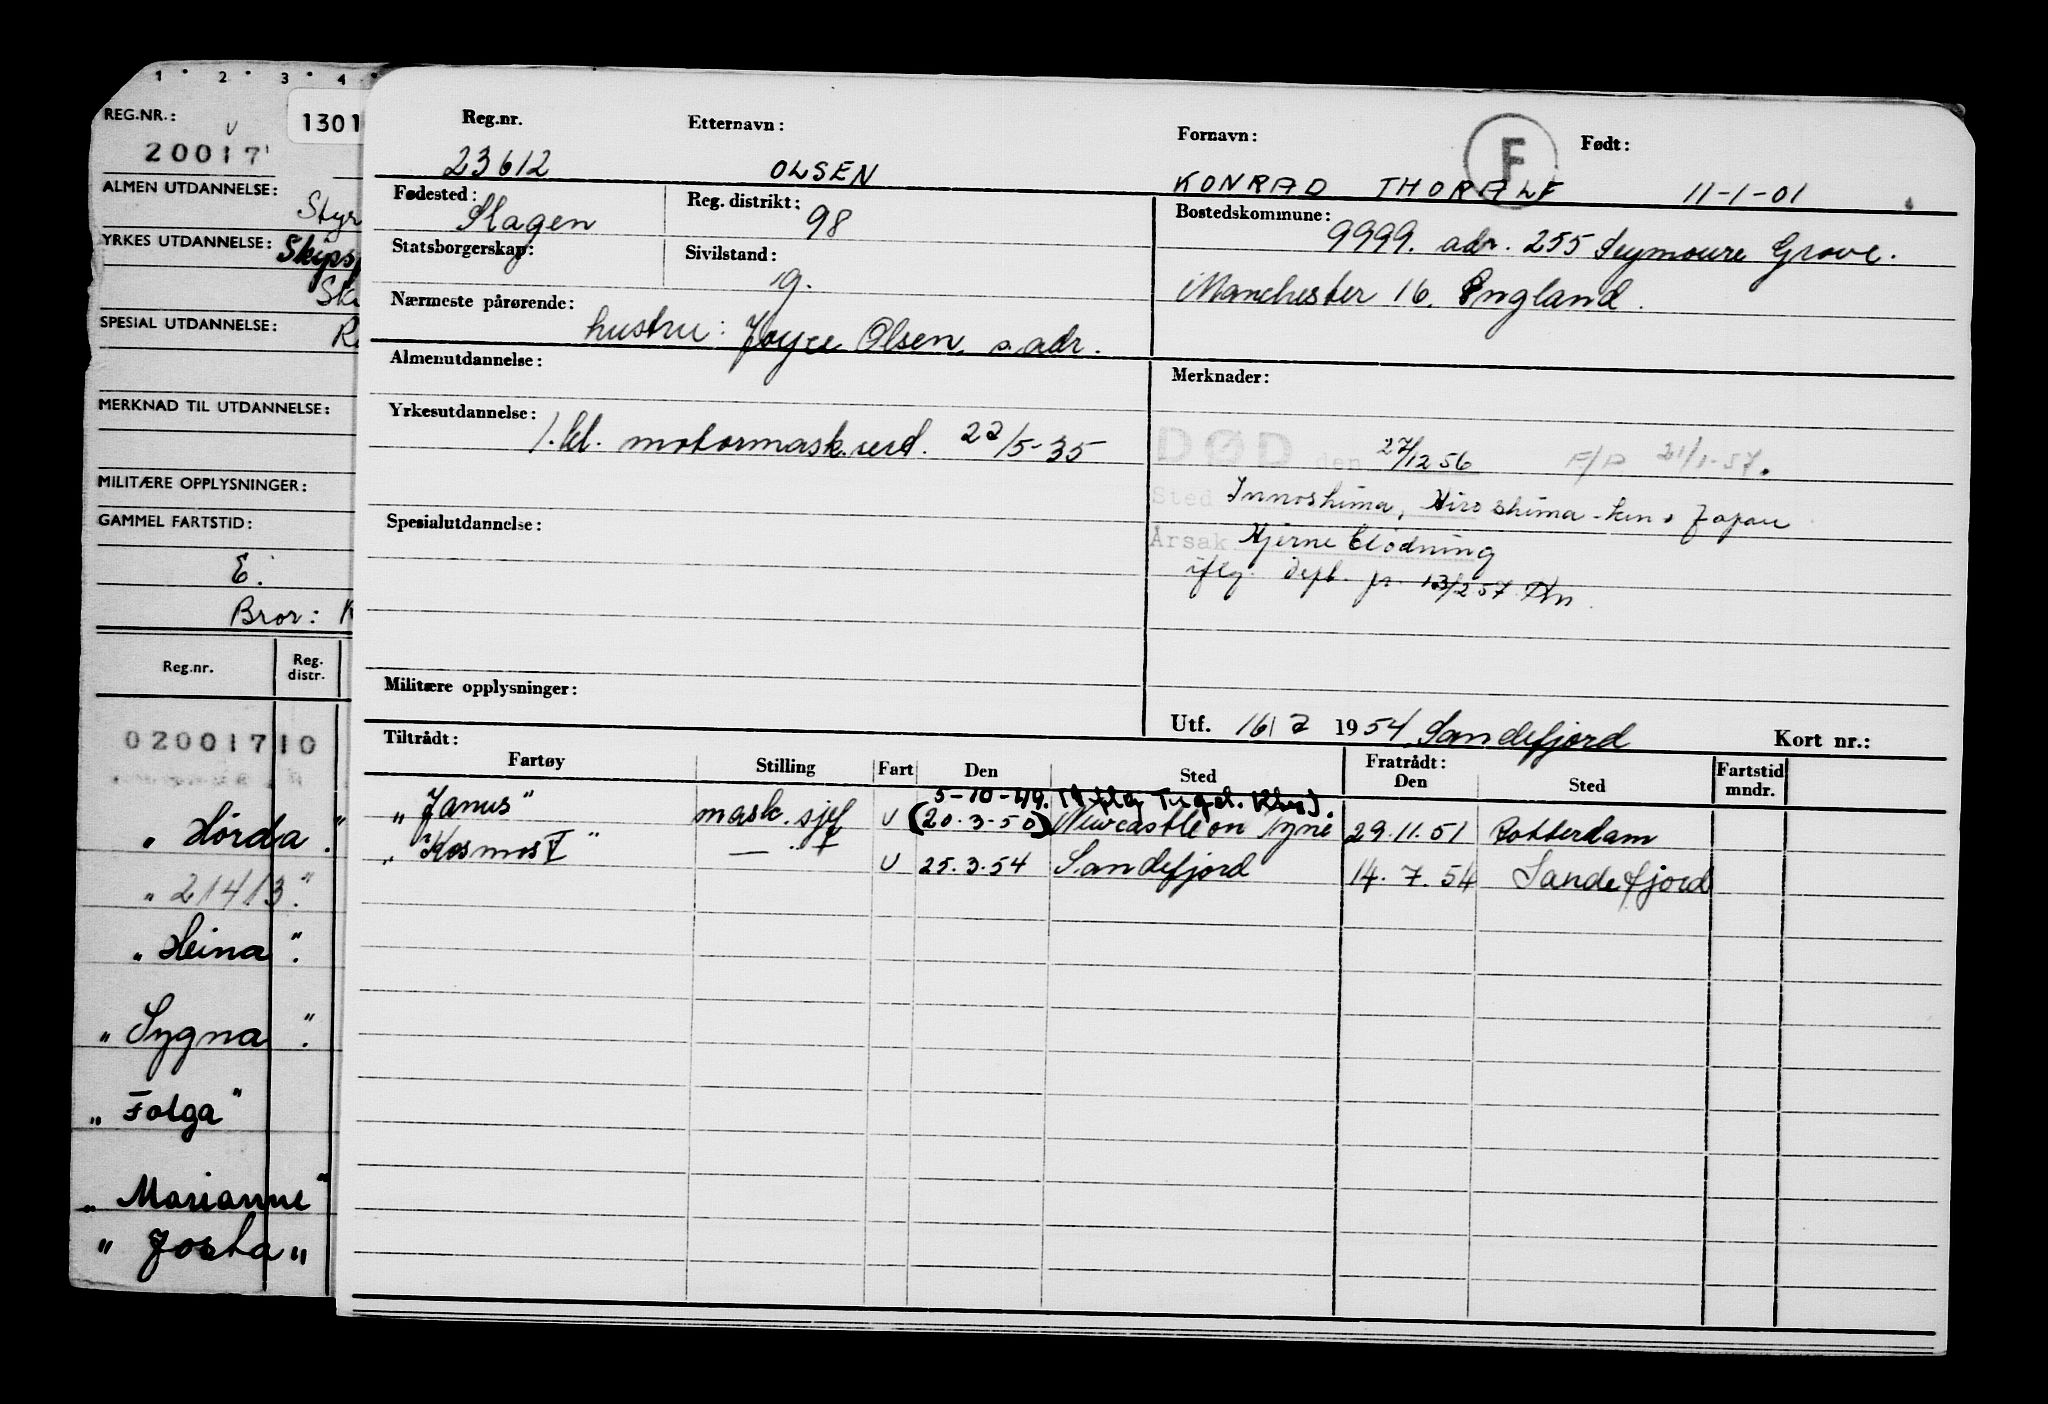 1 2 3 4
REG.NR.:
1301
20017
ALMEN UTDANNELSE:
Styr
YRKES UTDANNELSE: Skips
Sk
SPESIAL UTDANNELSE:
MERKNAD TIL UTDANNELSE:
MILITÆRE OPPLYSNINGER:
GAMMEL FARTSTID:
E.
Bror: K
Reg.nr. Reg. distr.
02001710
"Hörda."
"21413."
"Heina".
"Sygna".
"Folga"
"Marianne"
"Josta"
Reg.nr. Etternavn: Fornavn: F Født:
23612 OLSEN KONRAD THORALF 11-1-01
Fødested: Slagen Reg. distrikt: 98 Bostedskommune: 9999. adr. 255 Seymoure Grove.
Statsborgerskap: Sivilstand: g. Manchester 16. England.
Nærmeste pårørende: hustru: Joyce Olsen s. adr.
Almenutdannelse: Merknader:
Yrkesutdannelse: 1. kl. motormask.serd. 22/5-35
DØD den 27/12 56 F/P 21/1-57.
Sted Innoshima, Hiroshima-ken, Japan
Spesialutdannelse: Årsak Hjerne blödning
iflg. dept. pr. 13/2 57
Militære opplysninger:
Utf. 16/2 1954 Sandefjord Kort nr.:
Tiltrådt: Fratrådt:
Fartøy Stilling Fart Den Sted Den Sted Fartstid mndr.
5-10-49.
"Janus" mask. sjef U (20.3-50) Newcastle on Tyne 29.11.51 Rotterdam
"Kosmos V" — . — U 25.3.54 Sandefjord 14.7.54 Sandefjord